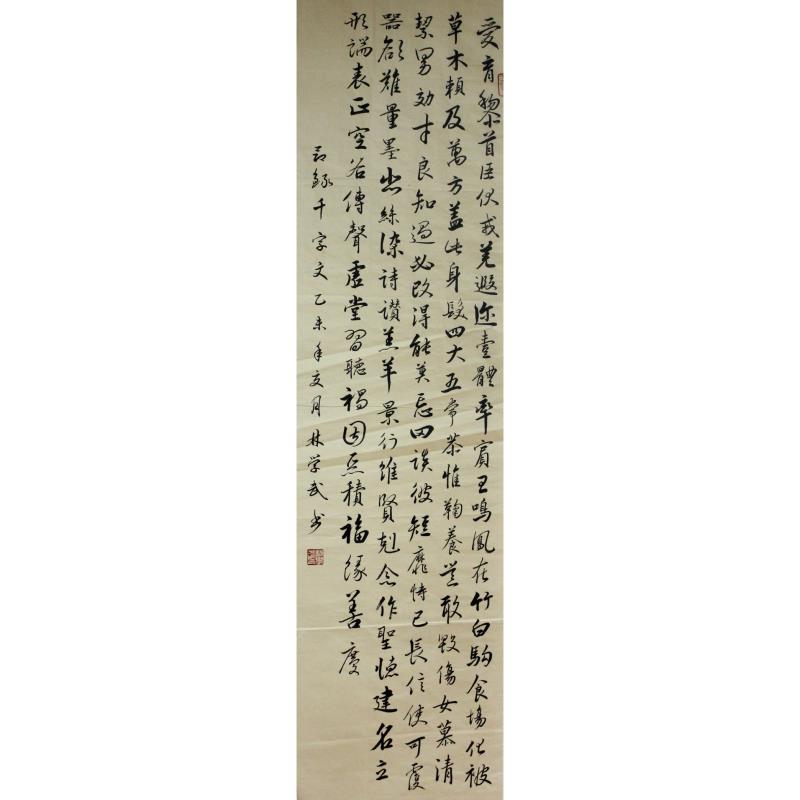 愛育黎首臣伏戎羌遐迩壹體率賓王鳴鳳在竹白駒食場化被
草木賴及萬方蓋此身髮四大五常恭惟鞠養豈敢毀傷女慕清
絜男効才良知過必改得能莫忘罔談彼短靡恃己長信使可覆
器欲難量墨悲絲染詩讚羔羊景行維賢剋念作聖德建名立
形端表正空谷傳聲虛堂習聽禍因惡積福緣善慶
节録千字文乙未年夏月林学武书